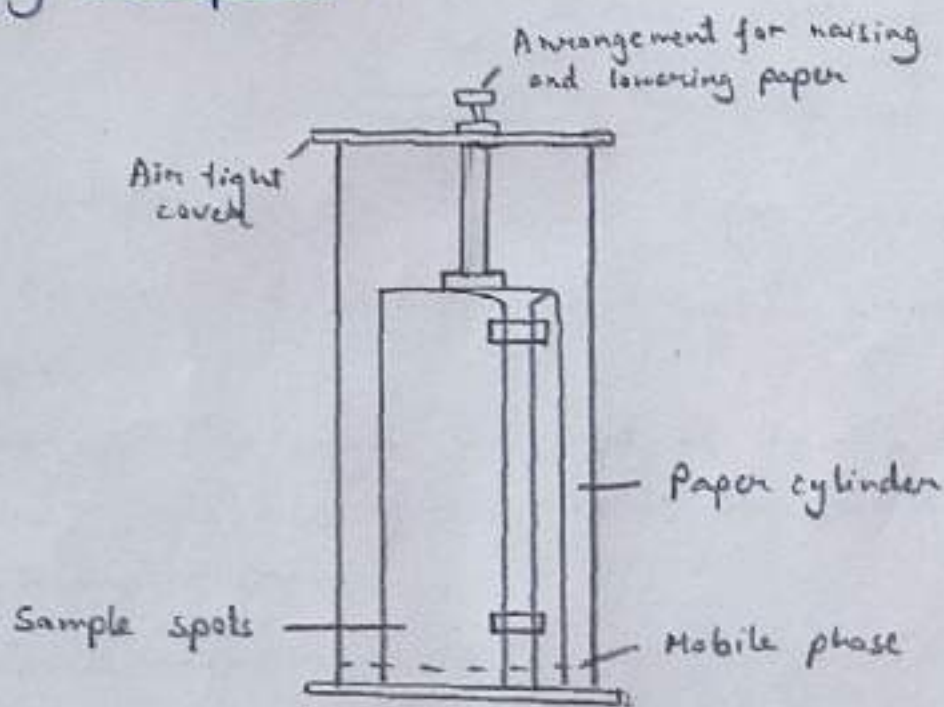 Arrangement for raising
and lowering paper
Air tight
cover
Paper cylinder
Sample spots
Mobile phase